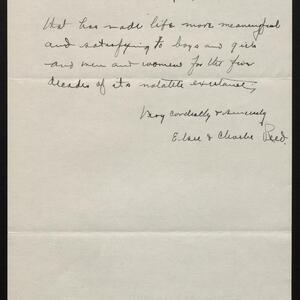 that has made life more meaningful
and satisfying to boys and girls
and men and women for the five
decades of its notable existence,
Very cordially & sincerely
Elsee & Charlie Reed.